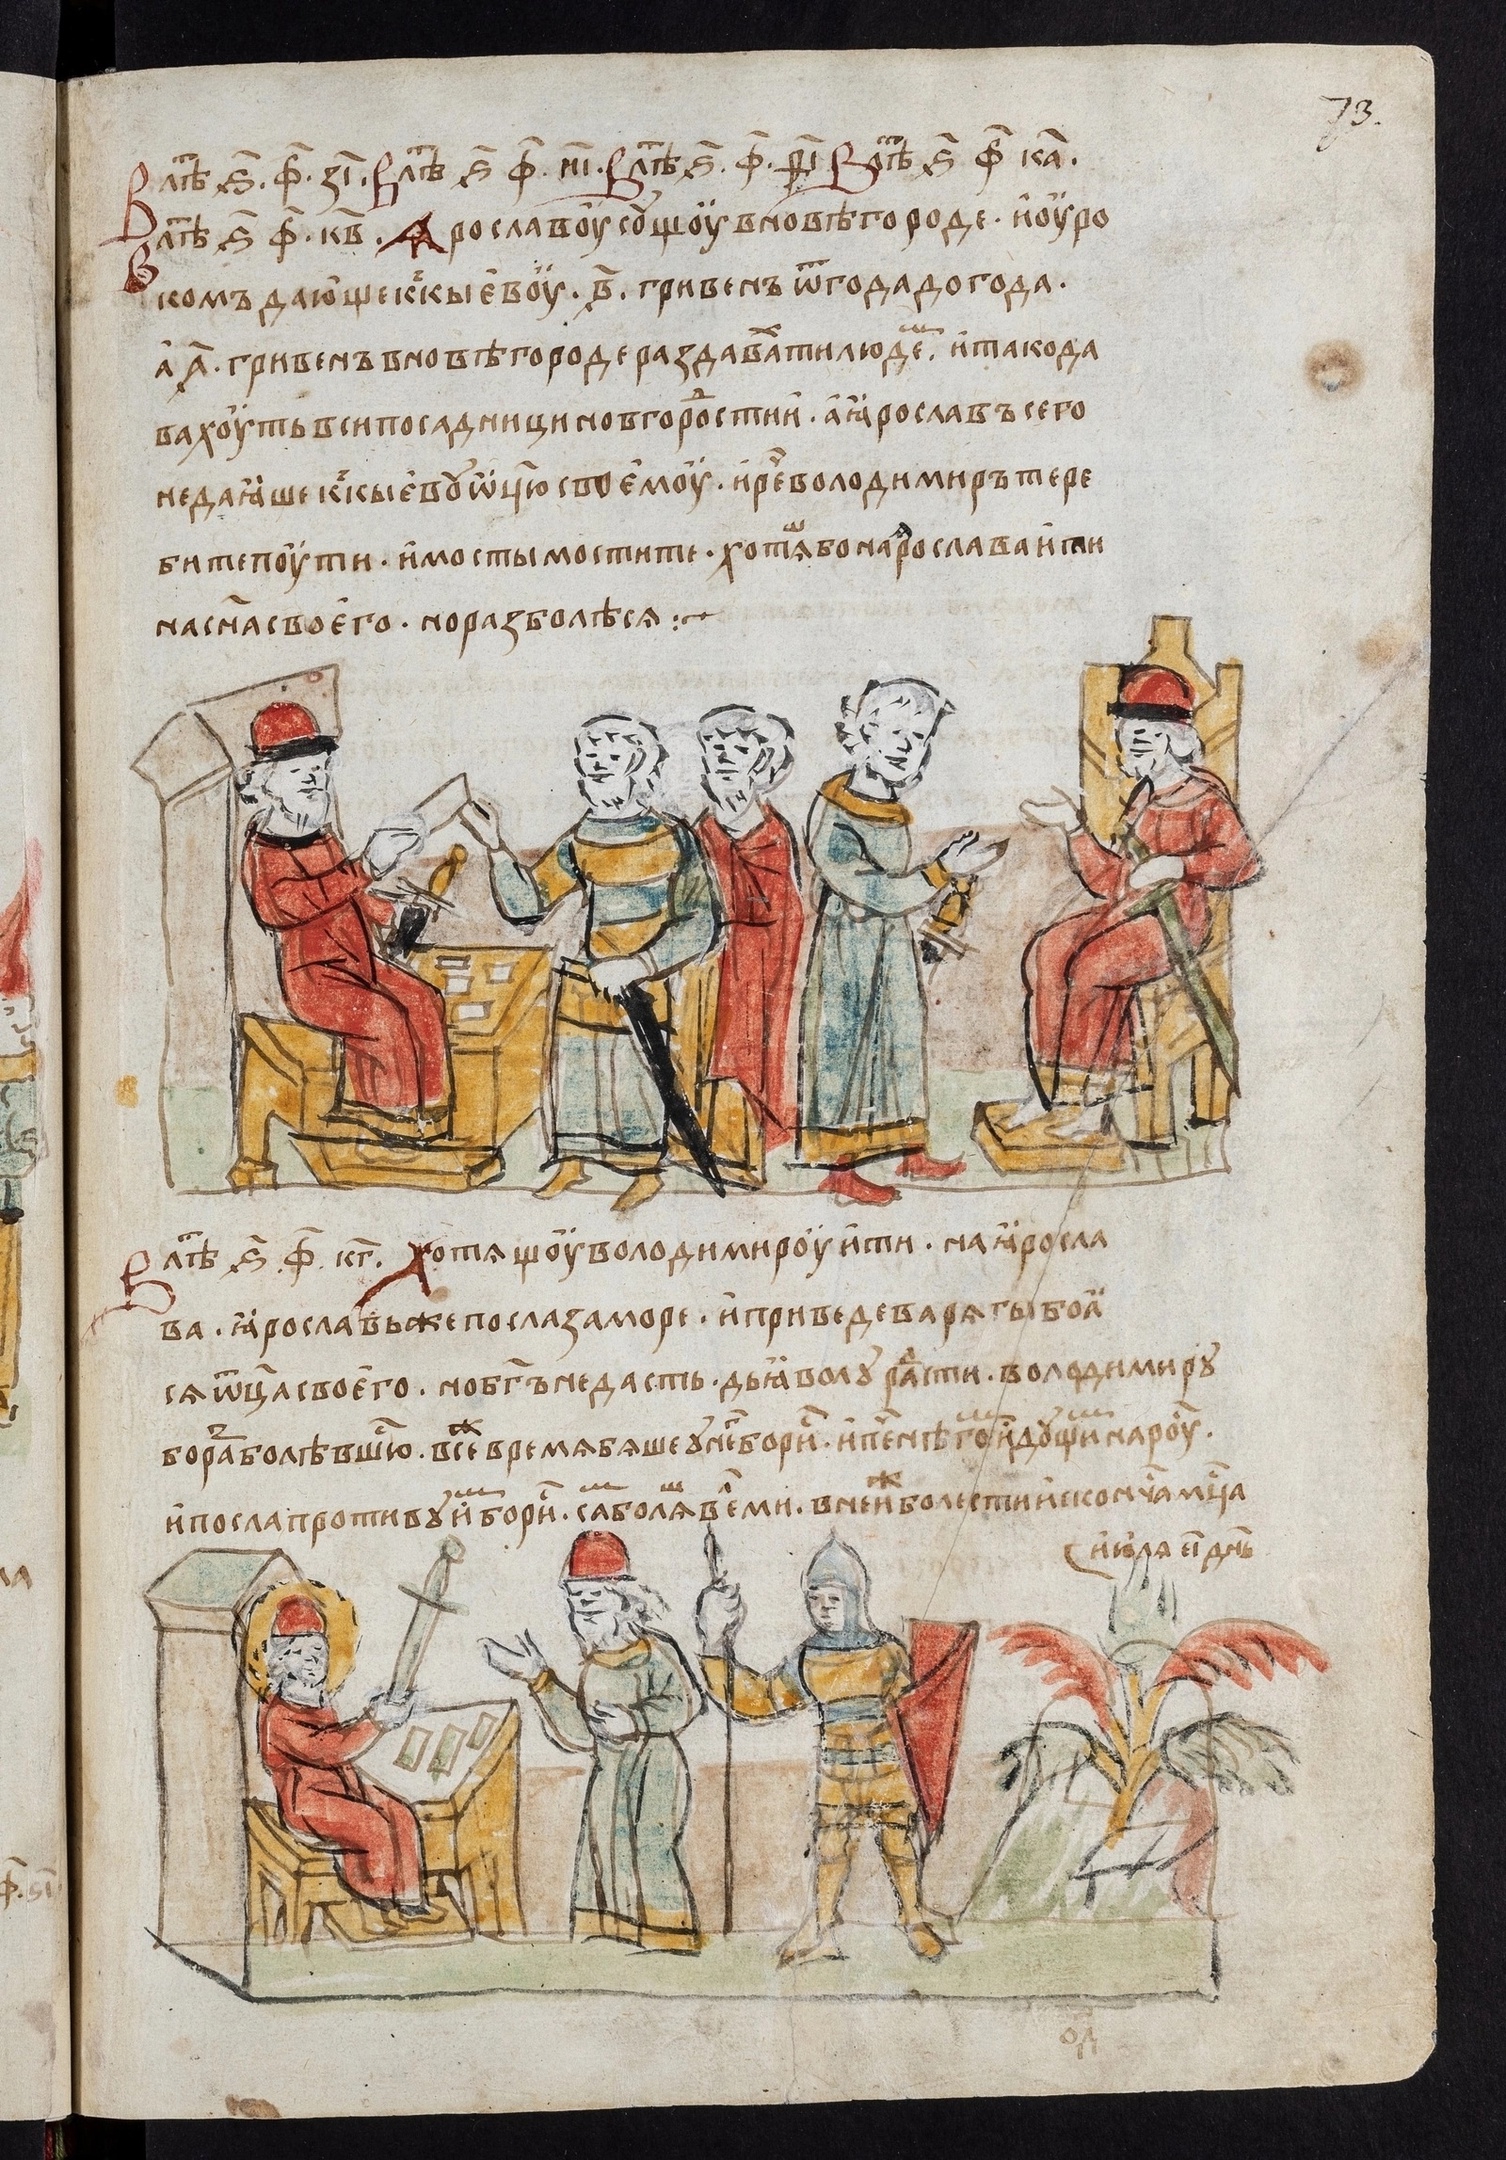 73.
В лⷮѣ ѕ҃. ф҃. з҃і. В лⷮѣ ѕ҃ ф҃. н҃і. В лⷮѣ ѕ҃. ф҃. к҃. В лⷮѣ ѕ҃ ф҃ к҃а.
В лⷮѣ ѕ҃ ф҃. к҃в. Ярославоу сꙋщоу в новѣгороде. и оуро
комъ дающе к кыевоу. в҃. гривенъ ѿ года до года.
а а҃. гривенъ в новѣгороде раздаваⷯти людеⷨ. и тако да
вахоуть вси посадници новгороⷣстии. а ꙗрославъ сего
не даꙗше к кыевꙋ ѿц҃ю своемоу. и рⷱе володимиръ тере
бите поути. и мосты мостите. хотѧⷲ бо на ꙗрослава ити
на сн҃а своего. но разболѣсѧ :~
В лⷮѣ ѕ҃ ф҃. к҃г. Хотѧщоу володимироу ити. на ꙗросла
ва. ꙗрославь же посла за море. и приведе варѧгы боꙗ
сѧ ѿц҃а своего. но бг҃ъ не дасть. дьꙗволꙋ раⷣсти. володимирꙋ
бо раⷥболѣвшюⷭ. в сеⷤ времѧ бѧше ꙋ неⷢ борⷭи. и печенѣгоⷨ идꙋщиⷨ на рⷭоу.
и посла противꙋ иⷨ борⷭи. саⷨ болѧⷲ велⷨми. в неиⷤ болести и скончаⷭ мⷭца
июлѧ е҃і дн҃ь
од